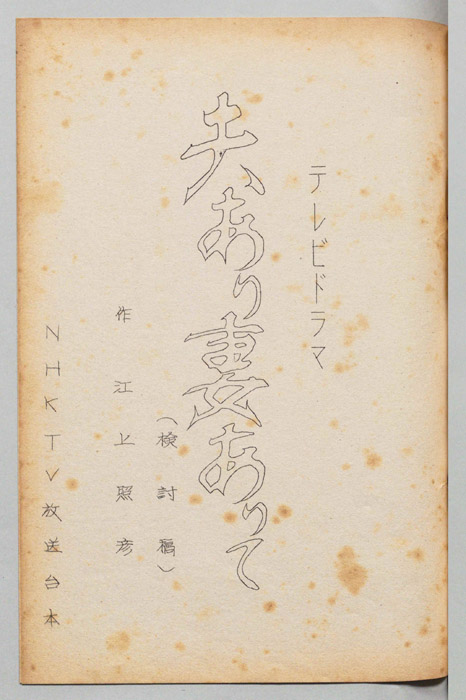 テレビドラマ
夫あり妻ありて
(検討稿)
作 江上照彦
NHKTV放送台本